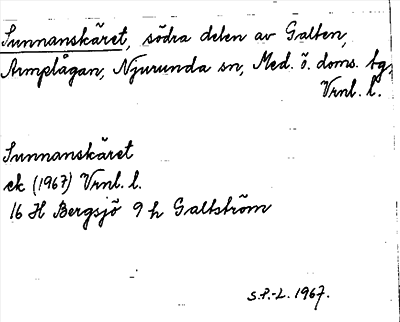 Sunnanskäret, södra delen av Galten,
Armplågan, Njurunda sn, Med. ö. doms. tg,
Vrnl. l.
Sunnanskäret
ek (1967) Vrnl. l.
16 H Bergsjö 9 h Galtström
S.P.-L. 1967.